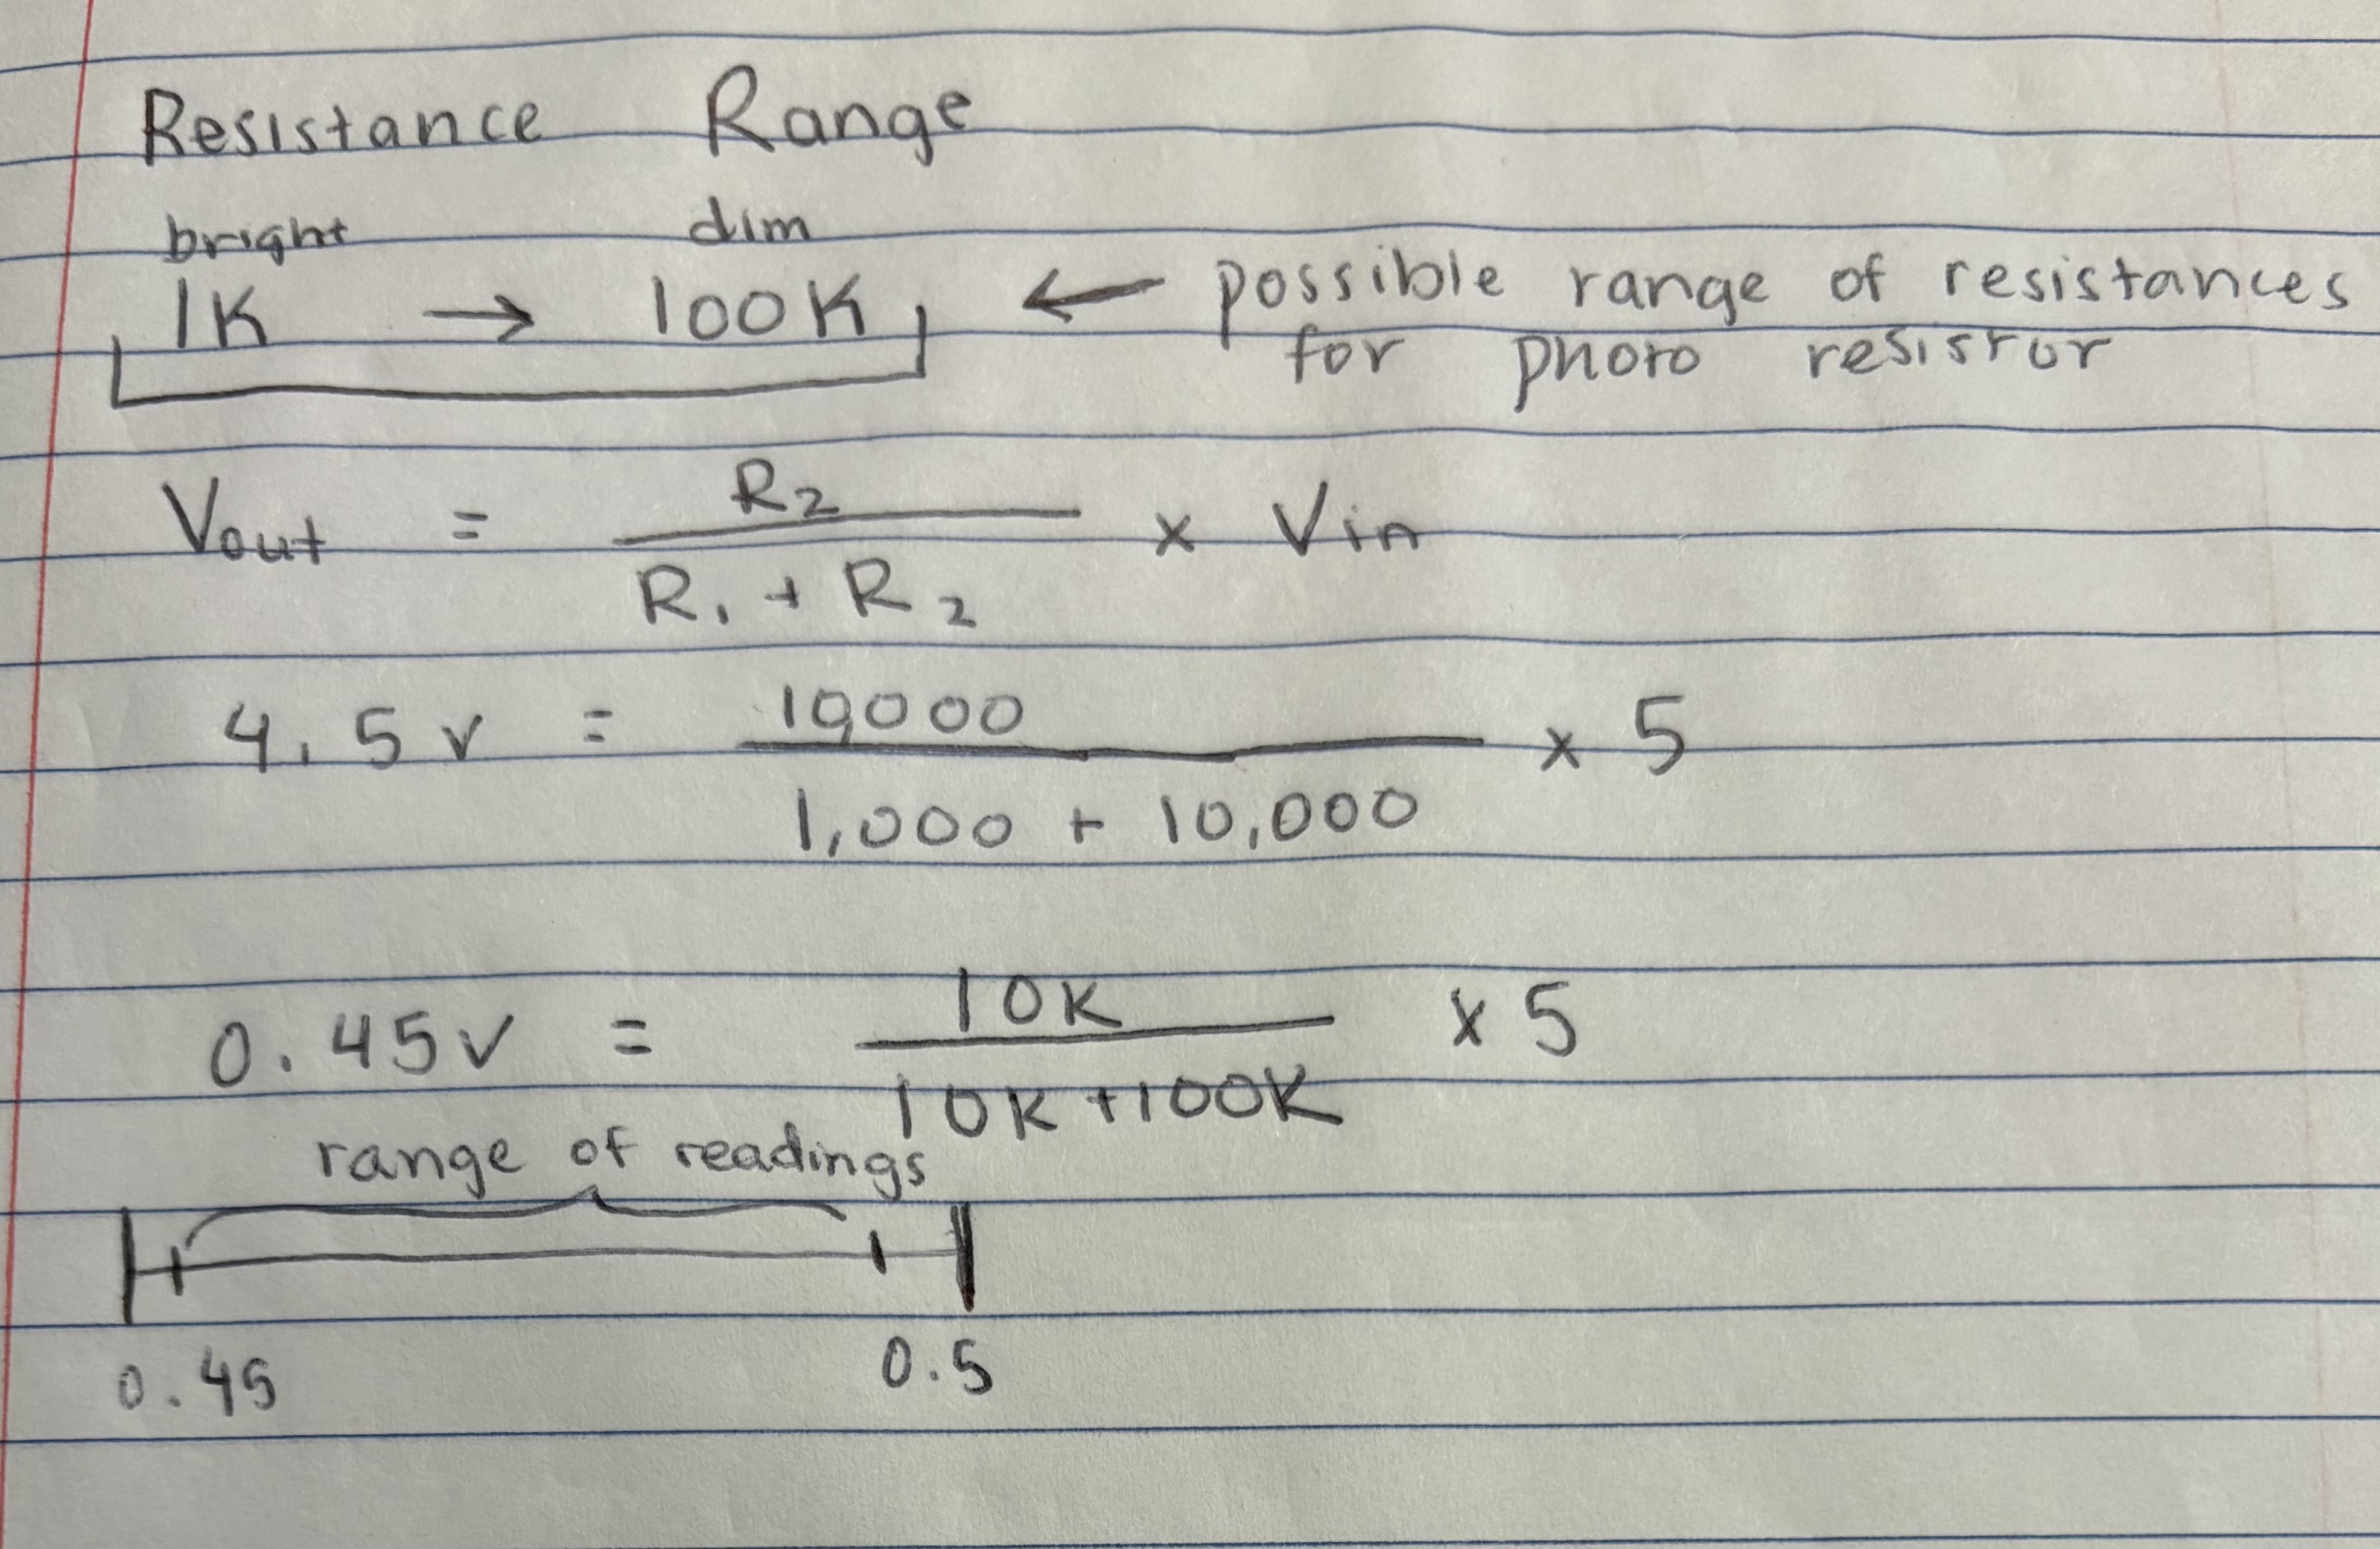 Resistance Range
bright dim
1K → 100K ← possible range of resistances
for photo resistor
Vout = R2 / R1 + R2 x Vin
4.5v = 10000 / 1,000 + 10,000 x 5
0.45v = 10K / 10K+100K x 5
range of readings
0.45 0.5